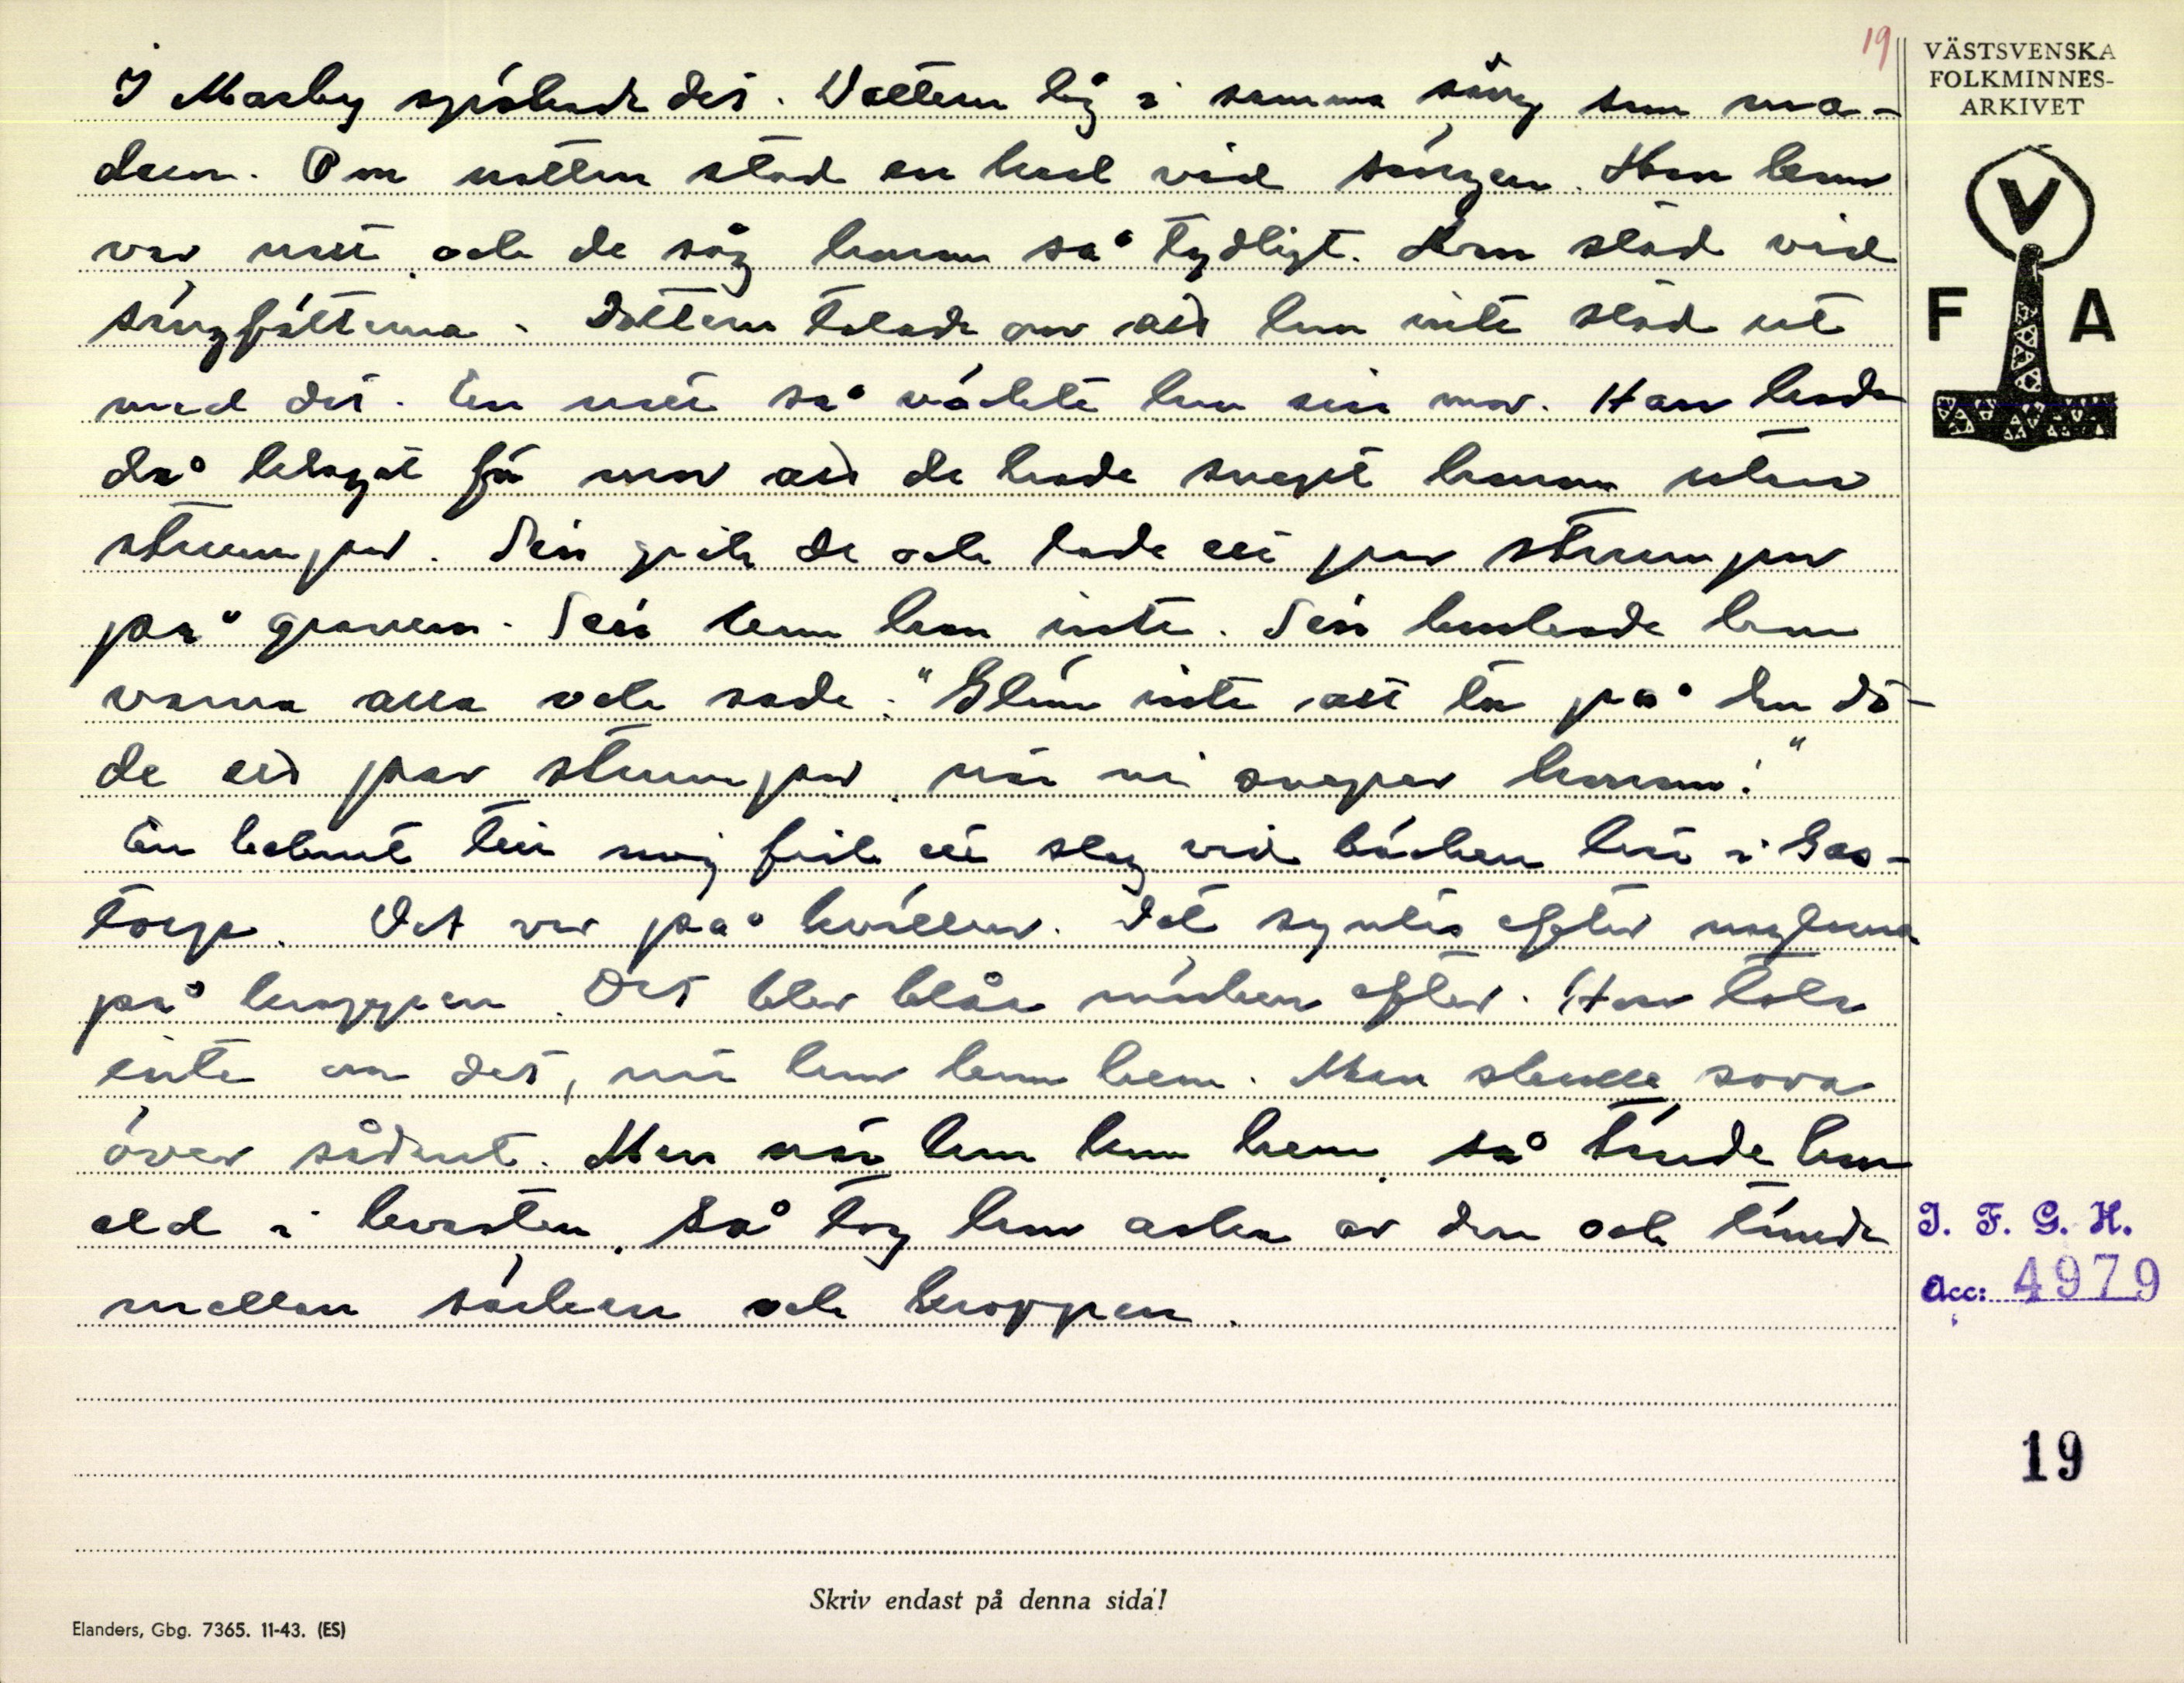 19
VÄSTSVENSKA
FOLKMINNES-
ARKIVET
V
F A
I Marby spökade det. Dottern låg i samma säng som mo-
dern. Om natten stod en karl vid sängen. Han kom
var natt, och de såg honom så tydligt. Han stod vid
sängfötterna. Dottern talade om att hon inte stod ut
med det. En natt så väckte hon sin mor. Han hade
då beklagat för mor att de hade svept honom utan
strumpor. Sen gick de och lade ett par strumpor
på graven. Sen kom han inte. Sen brukade hon
varna alla och sade: "Glöm inte att ta på den dö-
de ett par strumpor, när ni sveper honom!"
En bekant till mig fick ett slag vid bäcken här i Gas-
torp. Det var på kvällen. Det syntes efter naglarna
på kroppen. Det blev blåa märken efter. Han tala
inte om det, när han kom hem. Man skulle sova
över sådant. Men när han kom hem, så tände han
eld i kvasten. Så tog han askan av den och tände
mellan särken och kroppen.
I. F. G. H.
Acc: 4979
19
Skriv endast på denna sida!
Elanders, Gbg. 7365. 11-43. (ES)